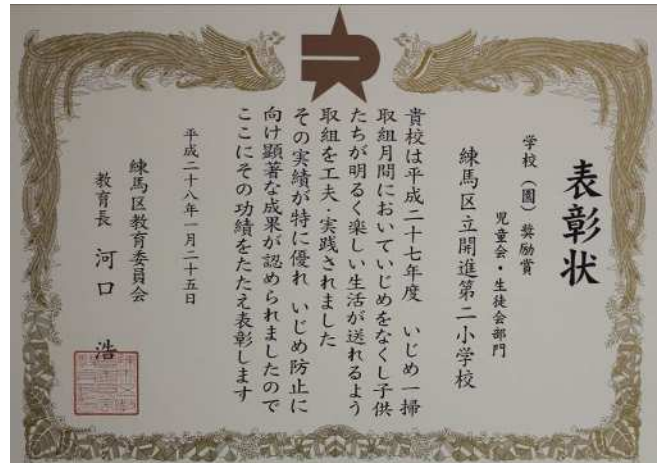 表彰状
学校（園）奨励賞
児童会・生徒会部門
練馬区立開進第二小学校
貴校は平成二十七年度　いじめ一掃
取組月間においていじめをなくし子供
たちが明るく楽しい生活が送れるよう
取組を工夫・実践されました
その実績が特に優れ　いじめ防止に
向け顕著な成果が認められましたので
ここにその功績をたたえ表彰します
平成二十八年一月二十五日
練馬区教育委員会
教育長　河口　浩